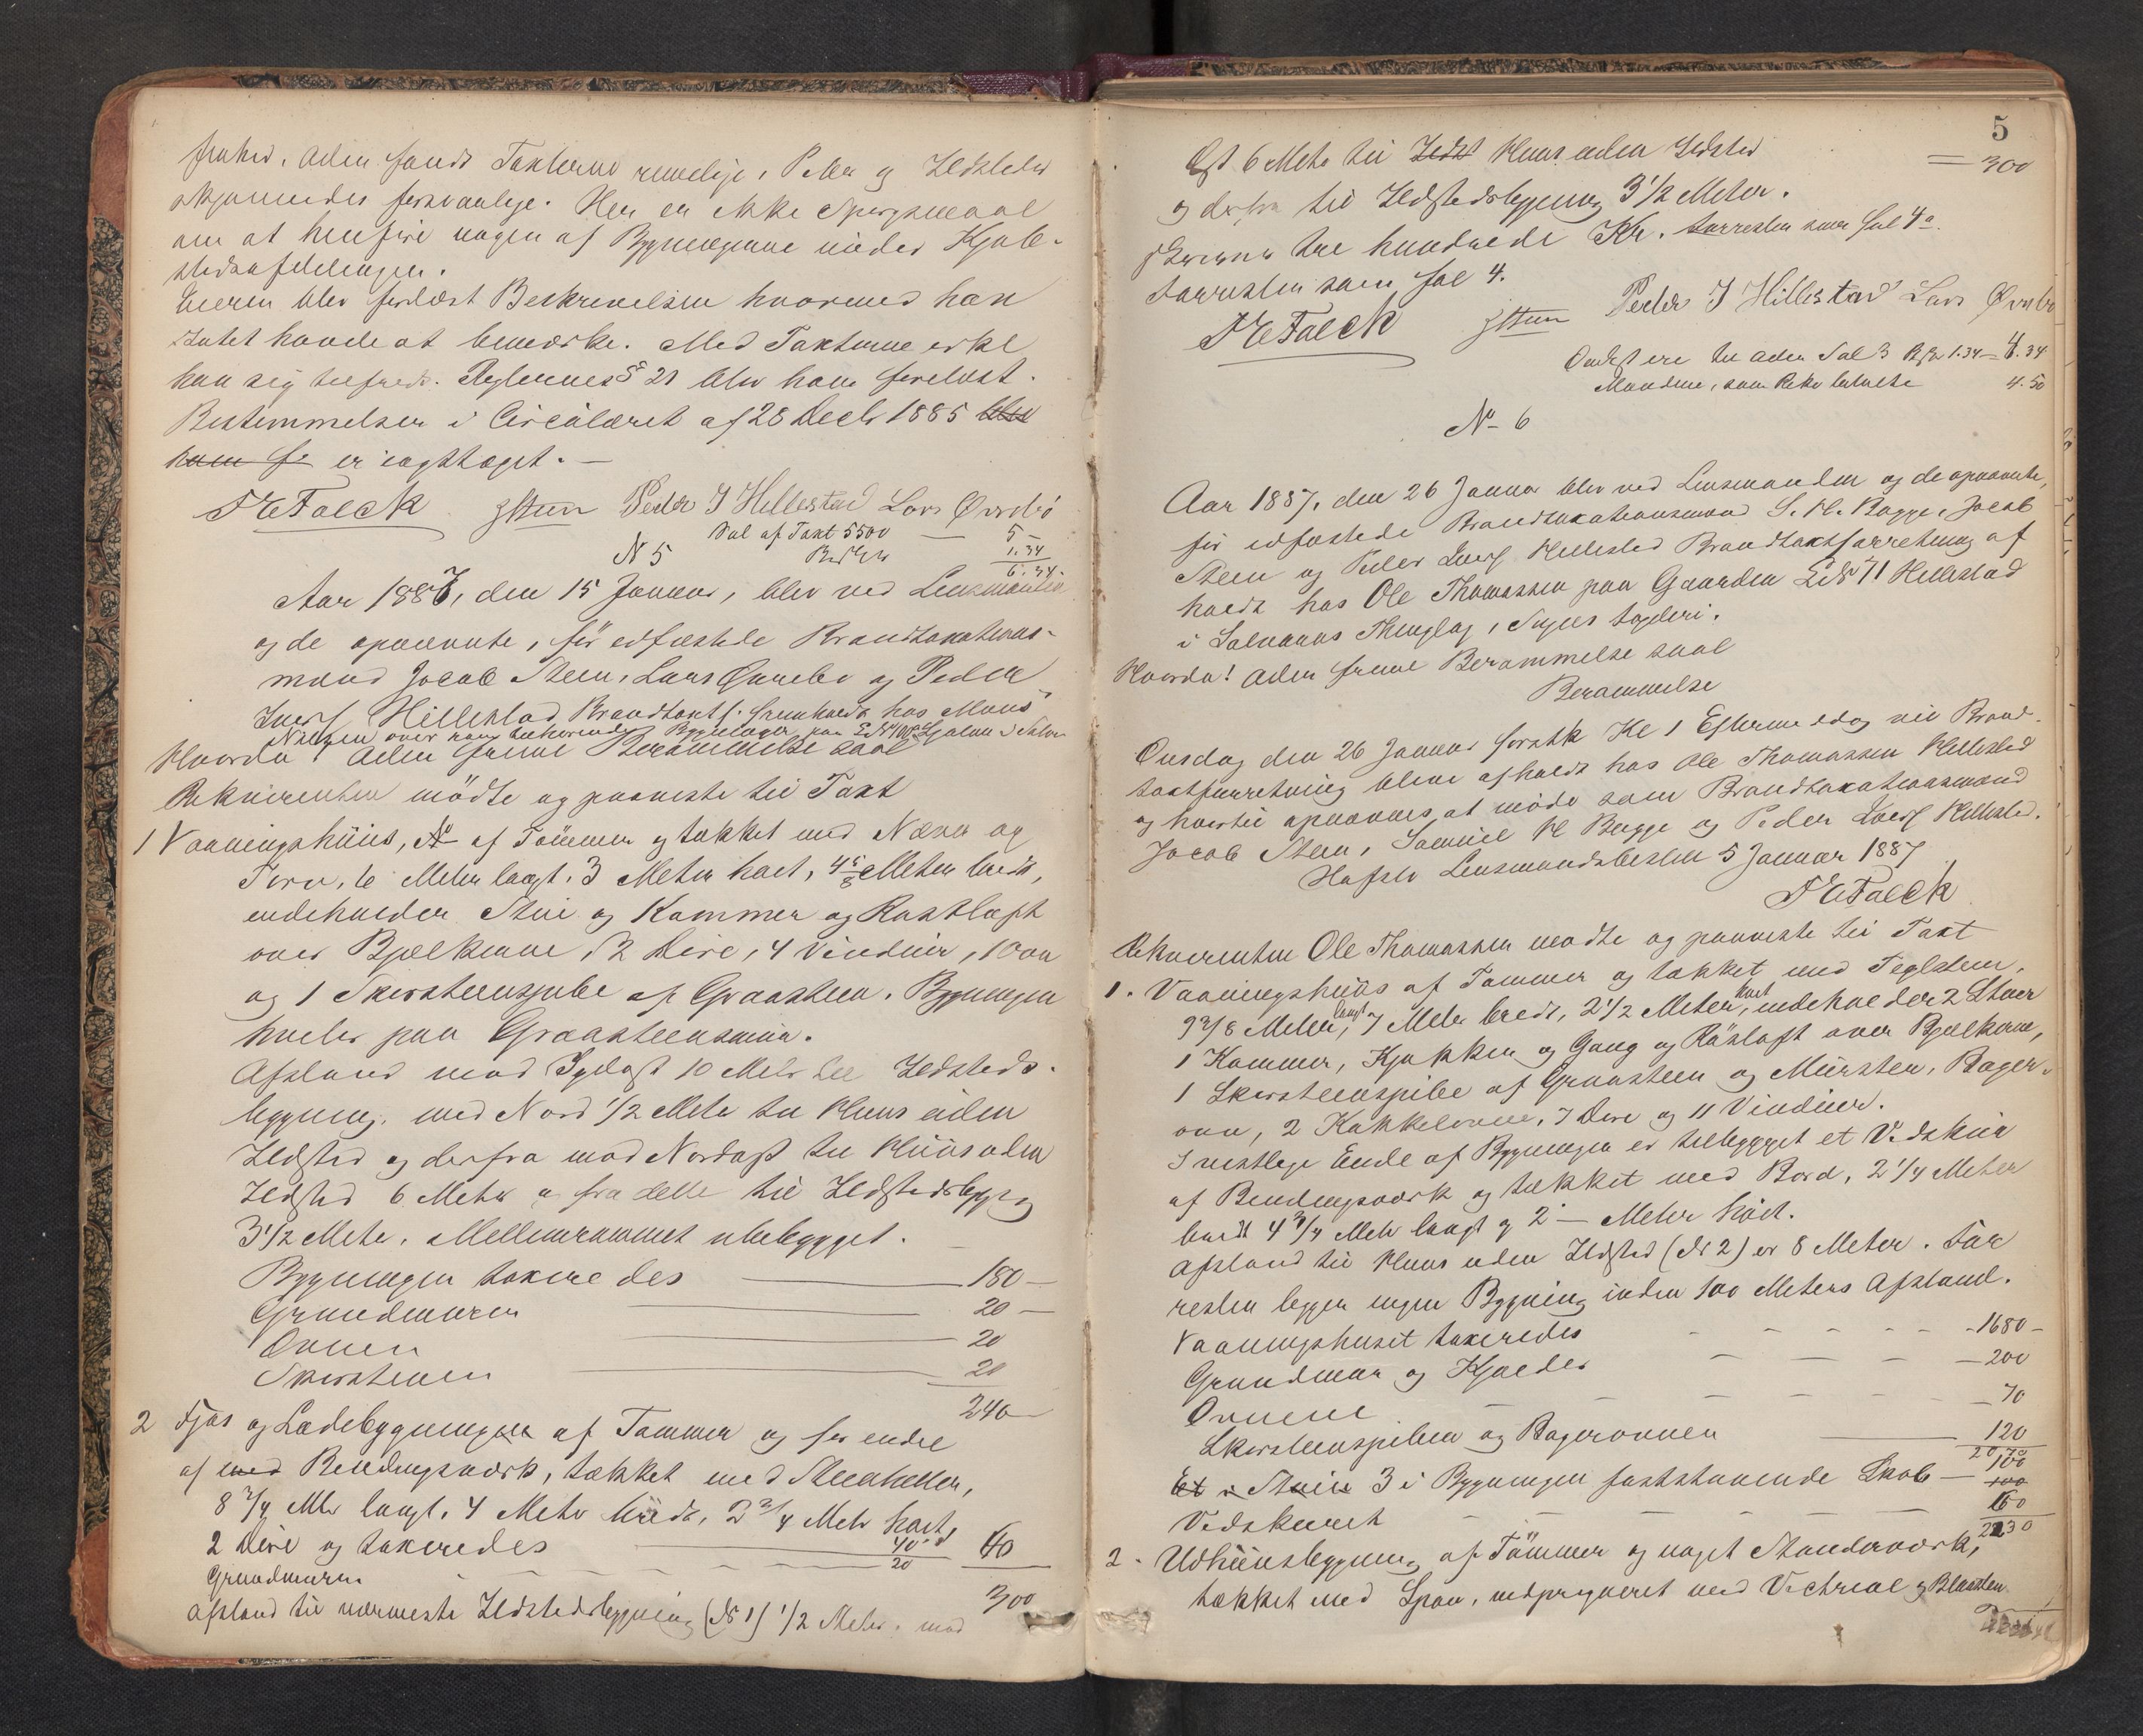 findes. Aden fandt Taxterne rimelige, Peder og Ildsteder
skjønnedes forsvarlige. Her er ikke Spørgsmaal
om at henføre nogen af Bygningerne under Kjøb-
stedsafdelingen.
Eieren blev forelæst Beskrivelsen hvormed han
Intet havde at bemærke. Med Taxterne erkl.
han sig tilfreds. Reglernes § 21 blev ham forelæst.
Bestemmelsen i Circulæret af 28 Decbr 1885 blev
ham f. er iagttaget. —
Falck JSteen Peder I Hillestad Lars Øvrebø
Sal af Taxt 5500 — 5 -
N 5 1.34
6.34.
Aar 1887, den 15 Januar, blev ved Lensmanden
og de opnævnte, før edfæstede Brandtaxations-
mænd Jacob Steen, Lars Øvrebø og Peder
Iversen Hillestad Brandtaxtf. fremholdt hos Mons
Nilsen over ham tilhørende Bygninger paa
Hvorda! Aden freml Berammelse saal
Rekvirenten mødte og paaviste til Taxt
1 Vaaningshuus, af Tømmer og tækket med Næver og
Torv, 6 Meter langt, 3 Meter høit, 4 5/8 Meter bredt,
indeholder Stue og Kammer og Røstloft
over Bjælkerne, 2 Døre, 4 Vinduer, 1 Ovn
og 1 Skorsteenspibe af Graasteen. Bygningen
hviler paa Graasteensmuur.
Afstand mod Sydøst 10 Meter til Ildsteds-
bygning, mod Nord 1/2 Meter til Huus uden
Ildsted og derfra mod Nordøst til Huus uden
Ildsted 6 Meter og fra dette til Ildstedsbygg
3 1/2 Meter. Mellemrummet ubebygget.
Bygningen taxeredes — 180 —
Grundmuren — 20 —
Ovnen — 20
Skorstenen — 20
240
2 Fjøs og Ladebygningen af Tømmer og for endel
af med Bindingsværk, tækket med Steenheller,
8 3/4 Meter langt, 4 Meter bredt, 2 3/4 Meter høit,
2 Døre og taxeredes — 40 60
Grundmuren — 20
300
Afstand til nærmeste Ildstedsbygning (N 1) 1/2 Meter. mod
5
Øst 6 Meter til Ildst Huus uden Ildsted = 300
og derfra til Ildstedsbygning 3 1/2 Meter.
Skriver tre hundrede Kr. Forresten som fol 4
Forresten som fol 4.
Falck JSteen Peder I Hillestad Lars Øvrebø
1.34 = 4.34
Mændene, som Rekv betalte 4.50
N 6
Aar 1887, den 26 Januar blev ved Lensmanden og de opnævnte,
før edfæstede Brandtaxationsmænd S. H. Bugge, Jacob
Steen og Peder Iversen Hillestad Brandtaxtforretning af
holdt hos Ole Thomassen paa Gaarden LN 71 Hillestad
i Solvorns Thinglag, Sogns Fogderi.
Hvorda! Aden freml Berammelse saal
Berammelse
Onsdag den 26 Januar førstk Kl 1 Eftermiddag vil Brand-
taxtforretning blive afholdt hos Ole Thomassen Hillestad
og hvortil opnævnes at møde som Brandtaxationsmænd
Jacob Steen, Samuel H Bugge og Peder Iversen Hillestad.
Hafslo Lensmandsbestill 5 Januar 1887
Falck
Rekvirenten Ole Thomassen mødte og paaviste til Taxt
1. Vaaningshuus af Tømmer og tækket med Teglsteen,
9 3/8 Meter langt, 7 Meter bredt, 2 1/2 Meter høit, indeholder 2 Stuer
1 Kammer, Kjøkken og Gang og Røstloft over Bjælkerne,
1 Skorsteenspibe af Graasteen og Mursten, Bager-
ovn, 2 Kakkelovne, 7 Døre og 11 Vinduer.
I vestlige Ende af Bygningen er tilbygget et Vedskuur
af Bindingsværk og tækket med Bord, 2 1/4 Meter
bredt 4 3/4 Meter langt og 2 — Meter høit.
Afstand til Huus uden Ildsted (N 2) er 8 Meter. For
resten ligger ingen Bygning inden 100 Meters Afstand.
Vaaningshuset taxeredes — 1680 -
Grundmur og Kjælder — 200
Ovnene — 70
Skorsteenspiben og Bagerovnen — 120
2070
Et i Stuen 3 i Bygningen faststaaende Skabe — 100
Vedskuret — 60
2230
2. Udhuusbygning af Tømmer og noget Stenderværk,
tækket med Spon, imprægneret med Victreol og Blaasten